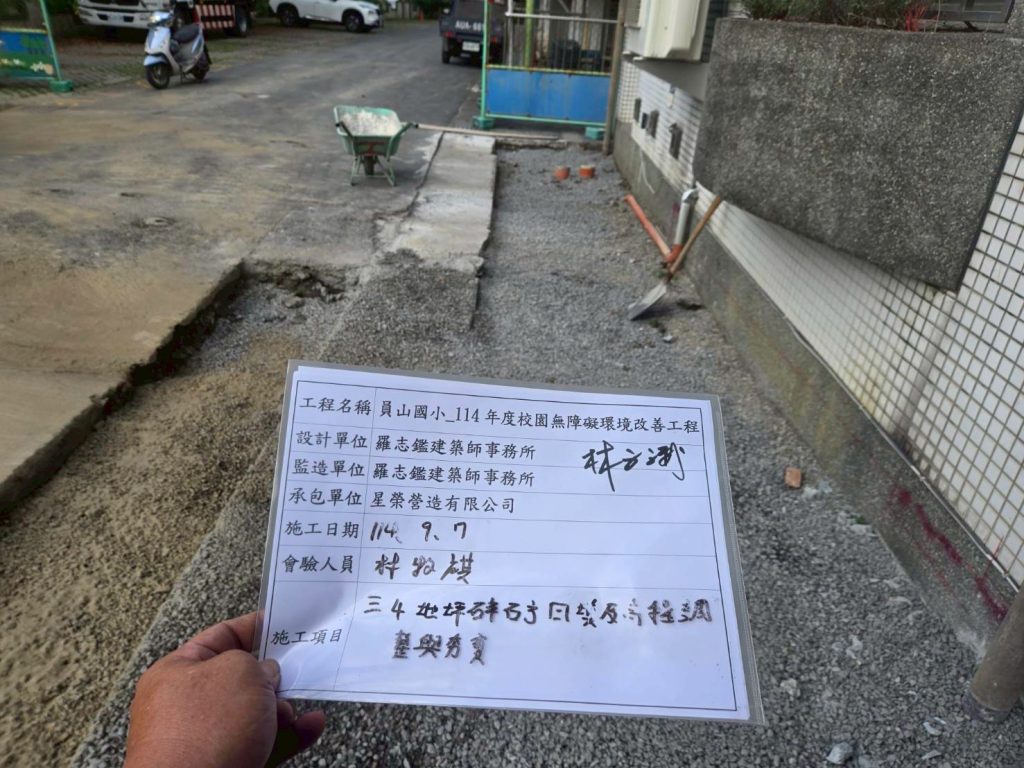 工程名稱 員山國小_114年度校園無障礙環境改善工程
設計單位 羅志鑑建築師事務所
監造單位 羅志鑑建築師事務所
承包單位 星榮營造有限公司
施工日期 114. 9. 7
會驗人員 林
施工項目 三4地坪碎石